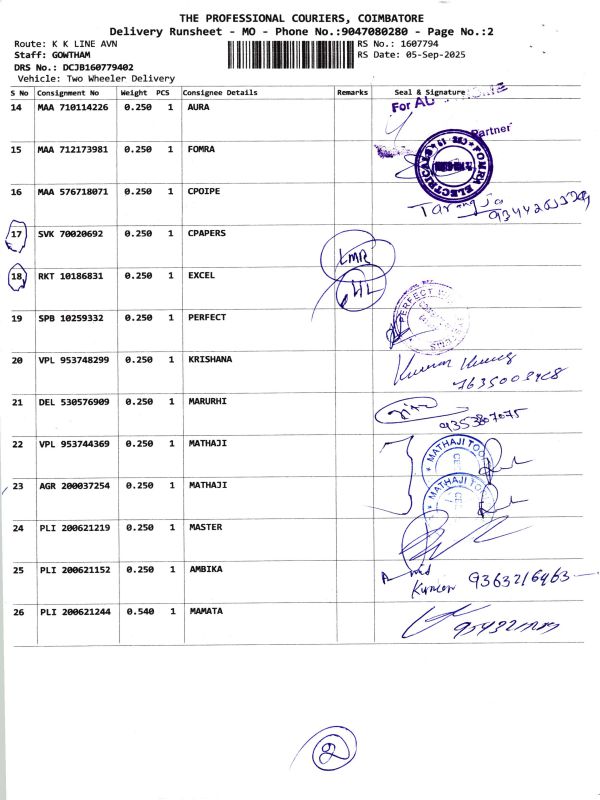 THE PROFESSIONAL COURIERS, COIMBATORE
Delivery Runsheet - MO - Phone No.:9047080280 - Page No.:2
Route: K K LINE AVN
RS No.: 1607794
Staff: GOWTHAM
RS Date: 05-Sep-2025
DRS No.: DCJB160779402
Vehicle: Two Wheeler Delivery
S No Consignment No Weight PCS Consignee Details Remarks Seal & Signature
For AU
14 MAA 710114226 0.250 1 AURA
Partner
15 MAA 712173981 0.250 1 FOMRA
FOMRA ELECTRIC
16 MAA 576718071 0.250 1 CPOIPE
17 SVK 70020692 0.250 1 CPAPERS
LMR
18 RKT 10186831 0.250 1 EXCEL
HL
19 SPB 10259332 0.250 1 PERFECT
PERFECT
20 VPL 953748299 0.250 1 KRISHANA
21 DEL 530576909 0.250 1 MARURHI
22 VPL 953744369 0.250 1 MATHAJI
MATHAJI TOO
23 AGR 200037254 0.250 1 MATHAJI
MATHAJI TO
24 PLI 200621219 0.250 1 MASTER
25 PLI 200621152 0.250 1 AMBIKA
9363216963
26 PLI 200621244 0.540 1 MAMATA
2